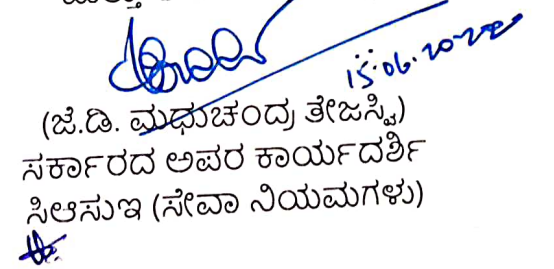 15.06.2022
(ಜೆ.ಡಿ. ಮಧುಚಂದ್ರ ತೇಜಸ್ವಿ)
ಸರ್ಕಾರದ ಅಪರ ಕಾರ್ಯದರ್ಶಿ
ಸಿಆಸುಇ (ಸೇವಾ ನಿಯಮಗಳು)